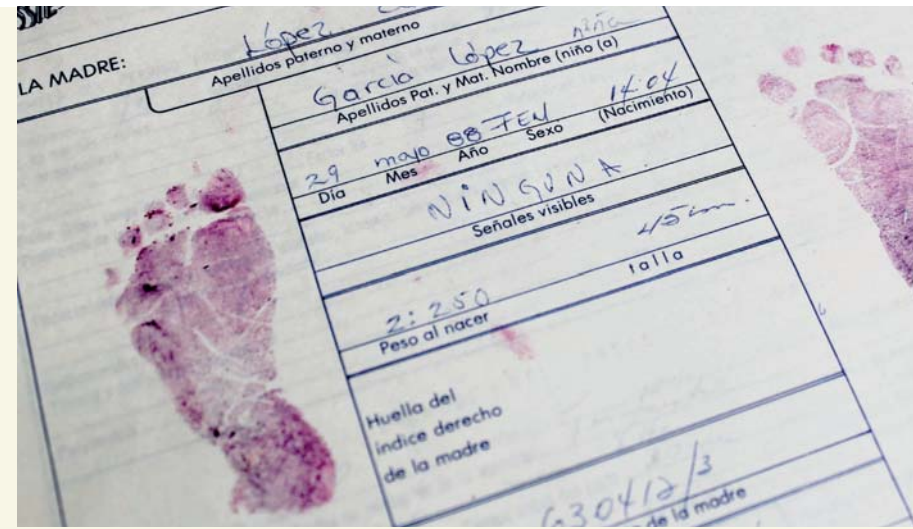 LA MADRE:
López
Apellidos paterno y materno
García López niña
Apellidos Pat. y Mat. Nombre (niño (a)
29 mayo 88 FEM 14:04
Día Mes Año Sexo (Nacimiento)
NINGUNA.
Señales visibles
45 cm.
talla
2:250
Peso al nacer
Huella del
indice derecho
de la madre
630412/3
de la madre